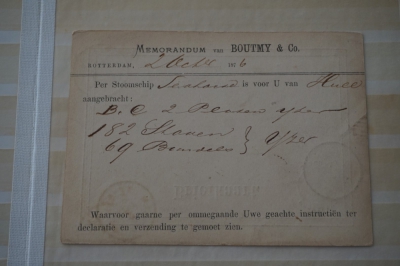 MEMORANDUM van BOUTMY & Co.
ROTTERDAM, 2 Octr 1876
Per Stoomschip Sealand is voor U van Hull
aangebracht:
B. C. 2 Platen Yzer
182 Staven } Yzer
69 Bundels
Waarvoor gaarne per ommegaande Uwe geachte instructiën ter
declaratie en verzending te gemoet zien.